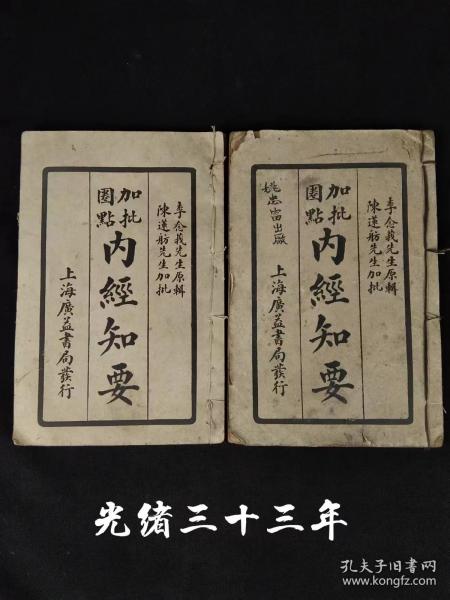 李念莪先生原輯
陳蓮舫先生加批
加批
圈點
內經知要
上海廣益書局發行
李念莪先生原輯
陳蓮舫先生加批
加批
圈點
內經知要
上海廣益書局發行
光緒三十三年
孔夫子旧书网
www.kongfz.com